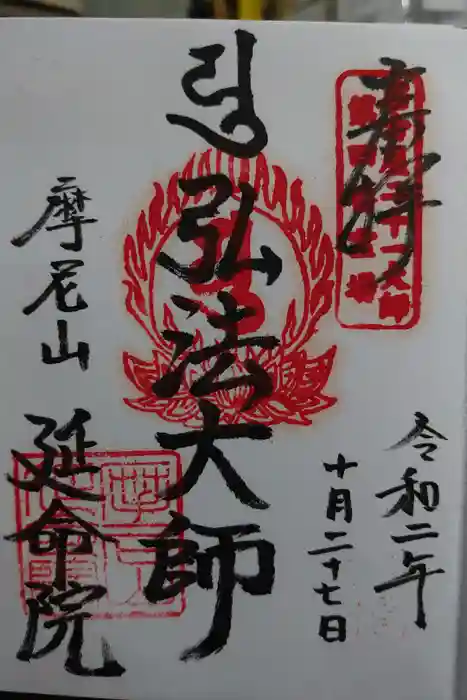 奉拝
令和二年
十月二十七日
弘法大師
摩尼山
延命院